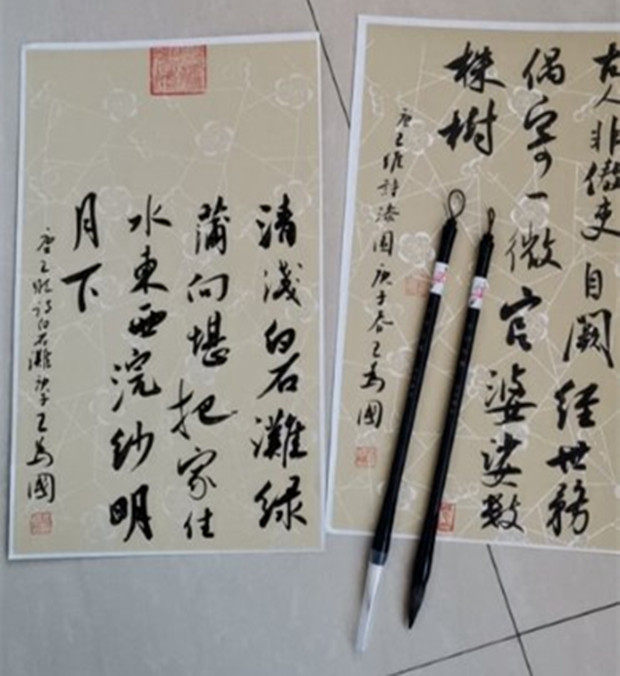 清淺白石灘綠
蒲向堪把家住
水東西浣紗明
月下
唐王維詩白石灘庚子王为國
古人非傲吏自闕經世務
偶寄一微官婆娑數
株樹
唐王維詩漆園庚子春王为國